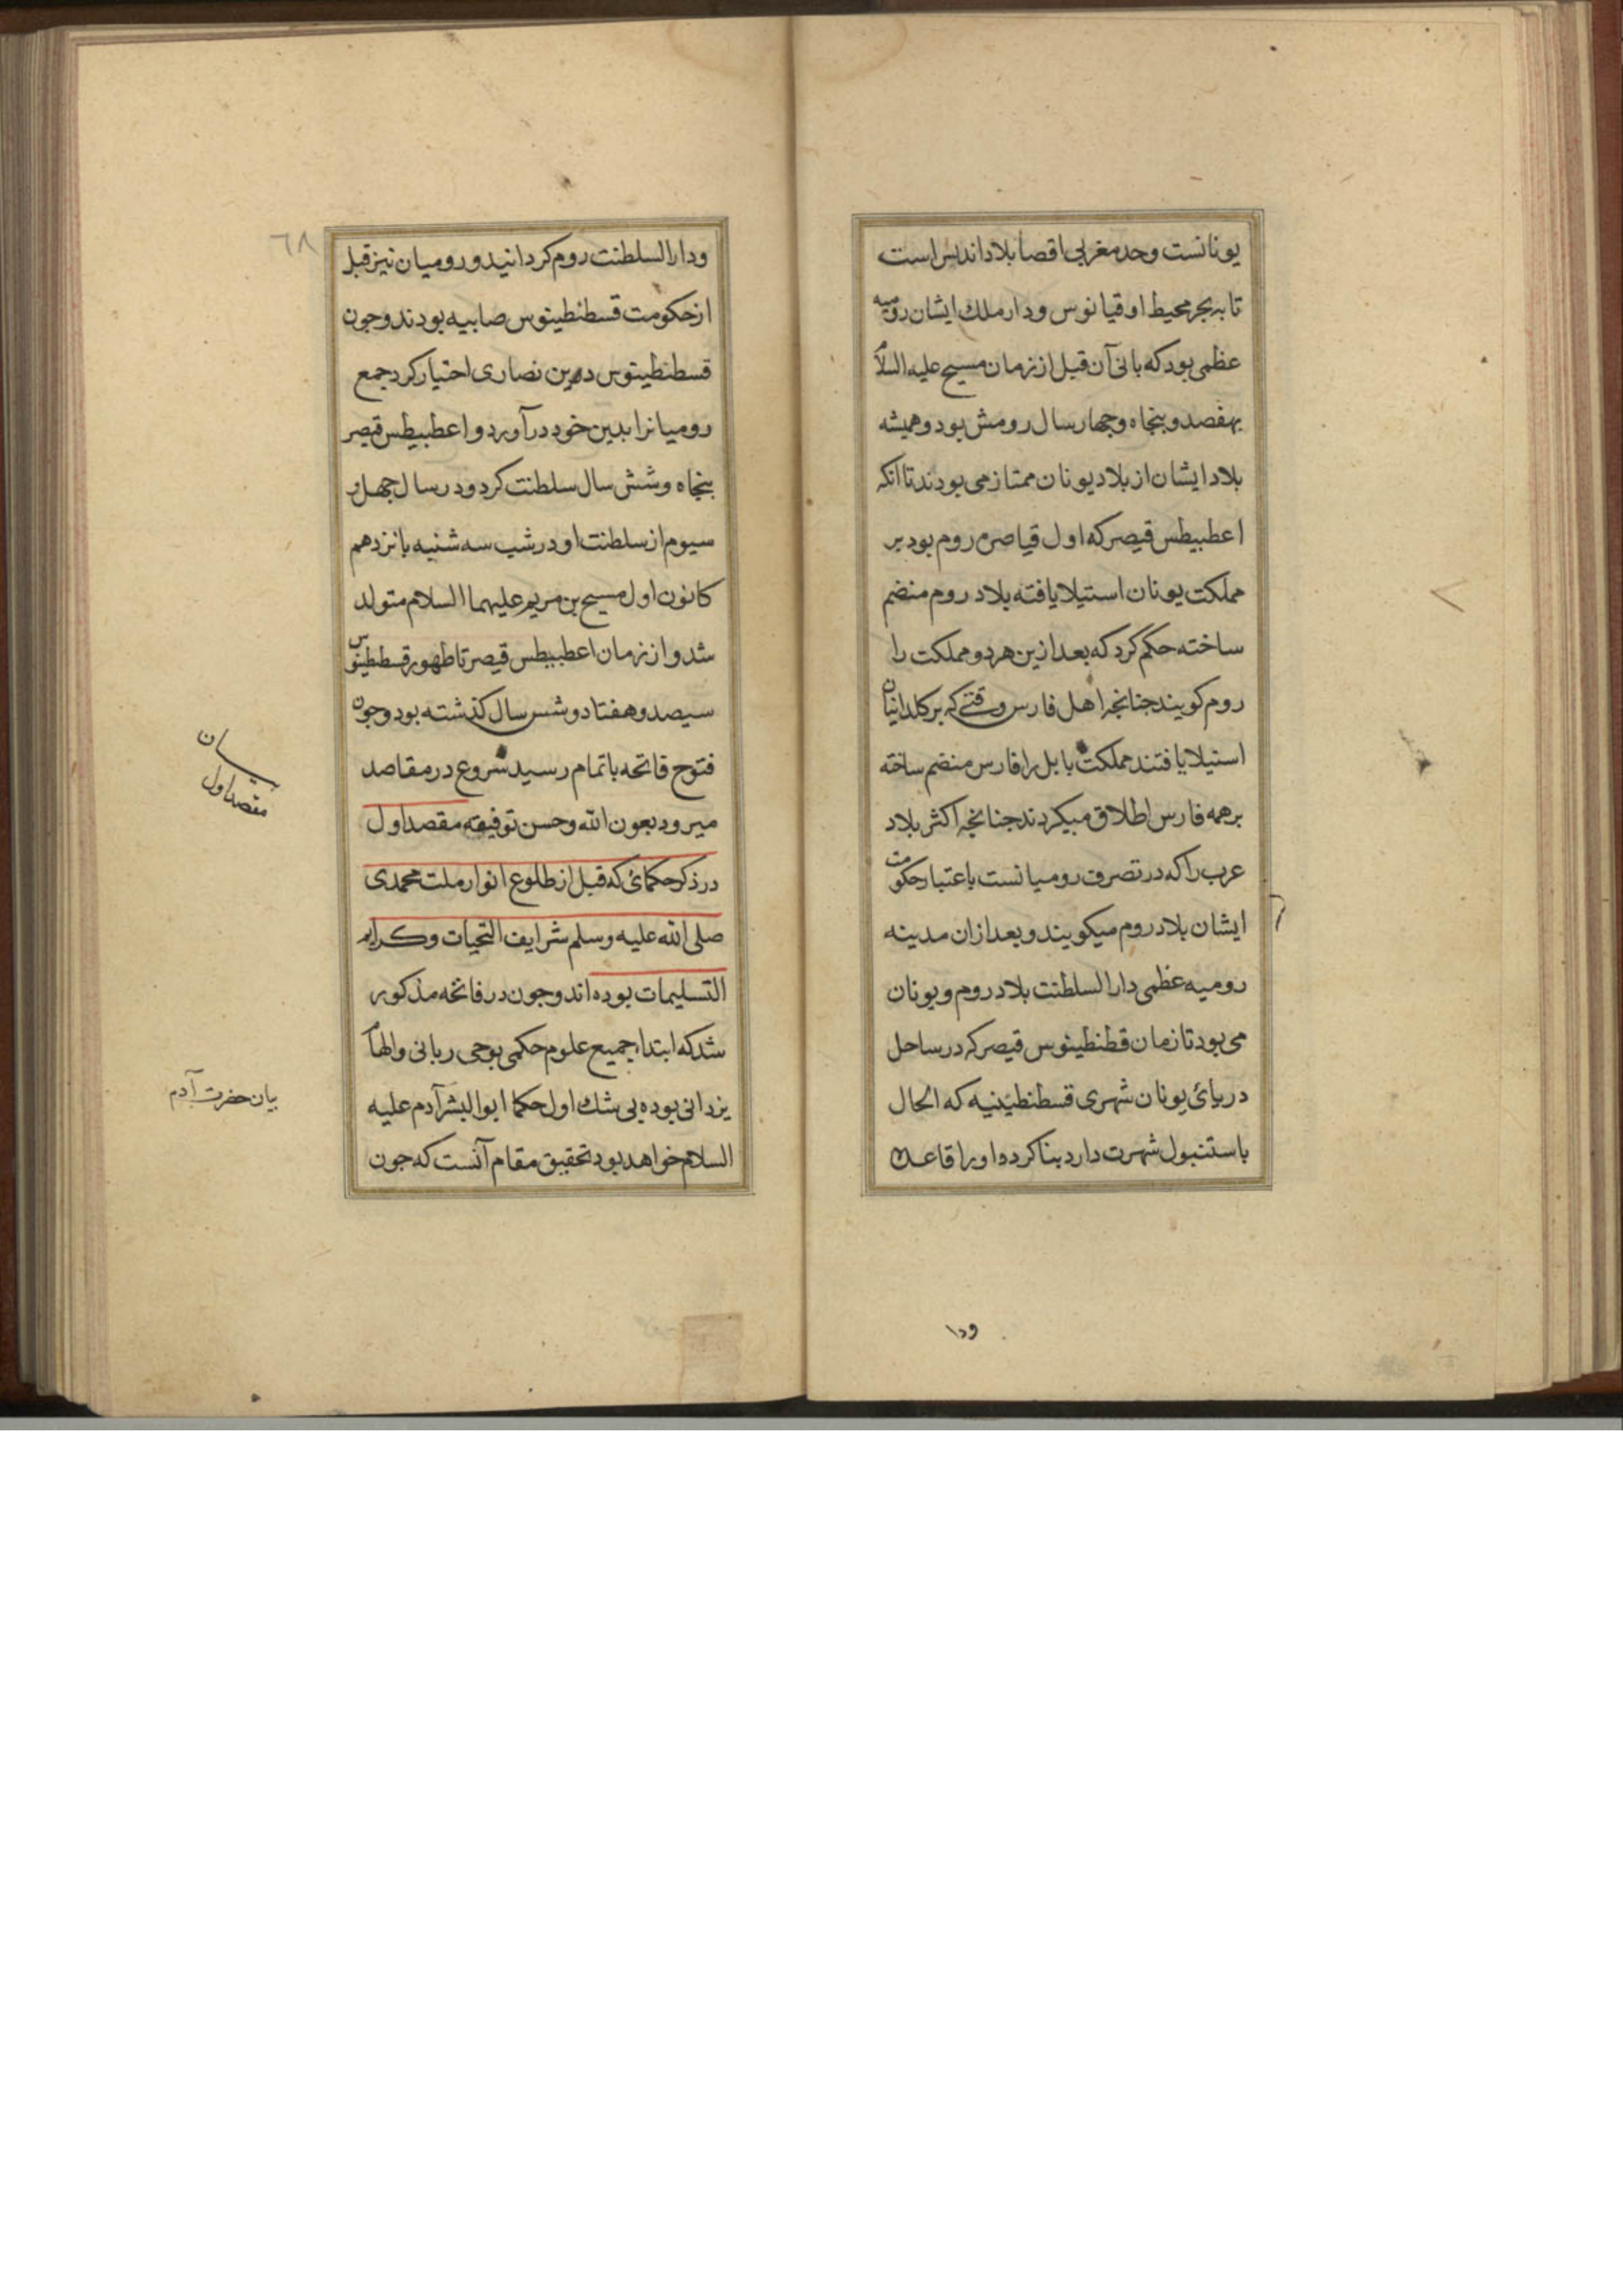 یونانست وحد مغربی اقصا بلاد اندلس است
تا به بحر محیط اوقیانوس ودار ملك ایشان رومیه
عظمی بود که بانی آن قبل از زمان مسیح علیه السلام
بهفصد و پنجاه وچهار سال رومش بود وهمیشه
بلاد ایشان از بلاد یونان ممتاز می بودند تا انکه
اعطبیطس قیصر که اول قیاصره روم بود بر
مملکت یونان استیلا یافته بلاد روم منضم
ساخته حکم کرد که بعد ازین هر دو مملکت را
روم کویند جنانجه اهل فارس وقتی که بر کلدانیان
استیلا یافتند مملکت بابل را فارس منضم ساخته
بر همه فارس اطلاق میکردند جنانجه اکثر بلاد
عرب را که در تصرف رومیانست باعتبار حکومت
ایشان بلاد روم میکویند و بعد ازان مدینه
رومیه عظمی دار السلطنت بلاد روم و یونان
می بود تا زمان قطنطینوس قیصر که در ساحل
دریائ یونان شهری قسطنطینیه که الحال
باستنبول شهرت دارد بنا کرده اورا قاعده
ودا
٦٨
ودار السلطنت روم کردانید و رومیان نیز قبل
از حکومت قسطنطینوس صابیه بودند وجون
قسطنطینوس دین نصاری اختیار کرد جمع
رومیانرا بدین خود در آورد و اعطبیطس قیصر
پنجاه وشش سال سلطنت کرد و در سال چهل و
سیوم از سلطنت او در شب سه شنبه پانزدهم
کانون اول مسیح بن مریم علیهما السلام متولد
شد و از زمان اعطبیطس قیصر تا ظهور قسطنطینوس
سیصد وهفتاد و شش سال کذشته بود وجون
فتوح فاتحه باتمام رسید شروع در مقاصد
میرود بعون الله وحسن توفیقه مقصد اول
در ذکر حکمائ که قبل از طلوع انوار ملت محمدی
صلی الله علیه وسلم شرایف التحیات وکرایم
التسلیمات بوده اند وجون در فاتحه مذکور
شد که ابتداء جمیع علوم حکمی بوحی ربانی والهام
یزدانی بوده بی شك اول حکما ابو البشر آدم علیه
السلام خواهد بود تحقیق مقام آنست که جون
بیان
مقصد اول
بیان حضرت آدم